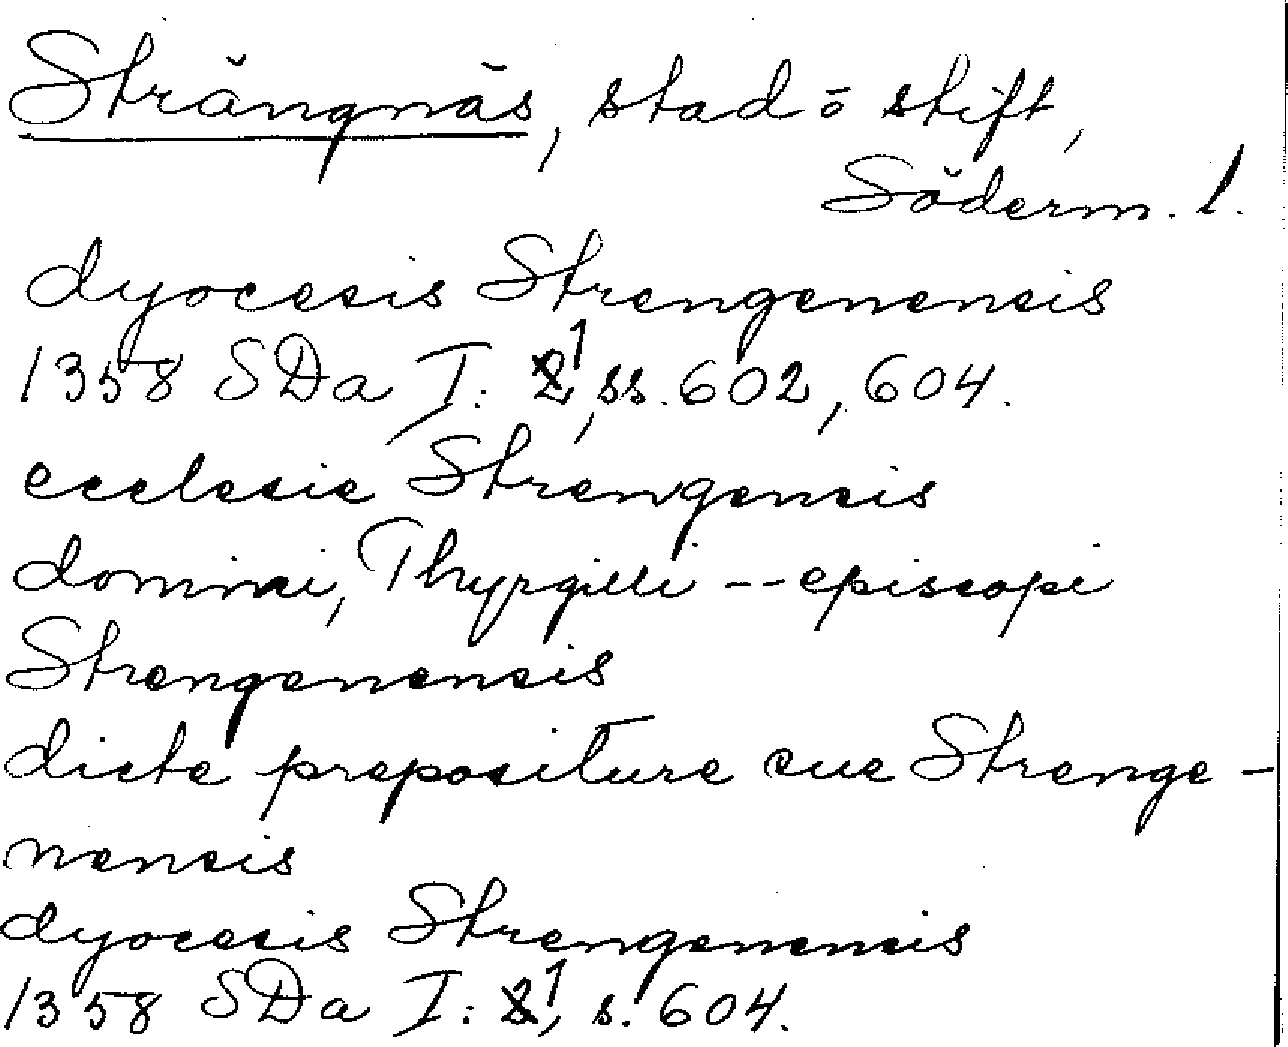 Strängnäs, stad o stift,
Söderm. l.
dyocesis Strengenensis
1358 SDa I: 1, ss. 602, 604.
ecclesie Strengensis
domini, Thyrgilli -- episcopi
Strengenensis
dicte prepositure sue Strenge-
nensis
dyocesis Strengenensis
1358 SDa I: 1, s. 604.